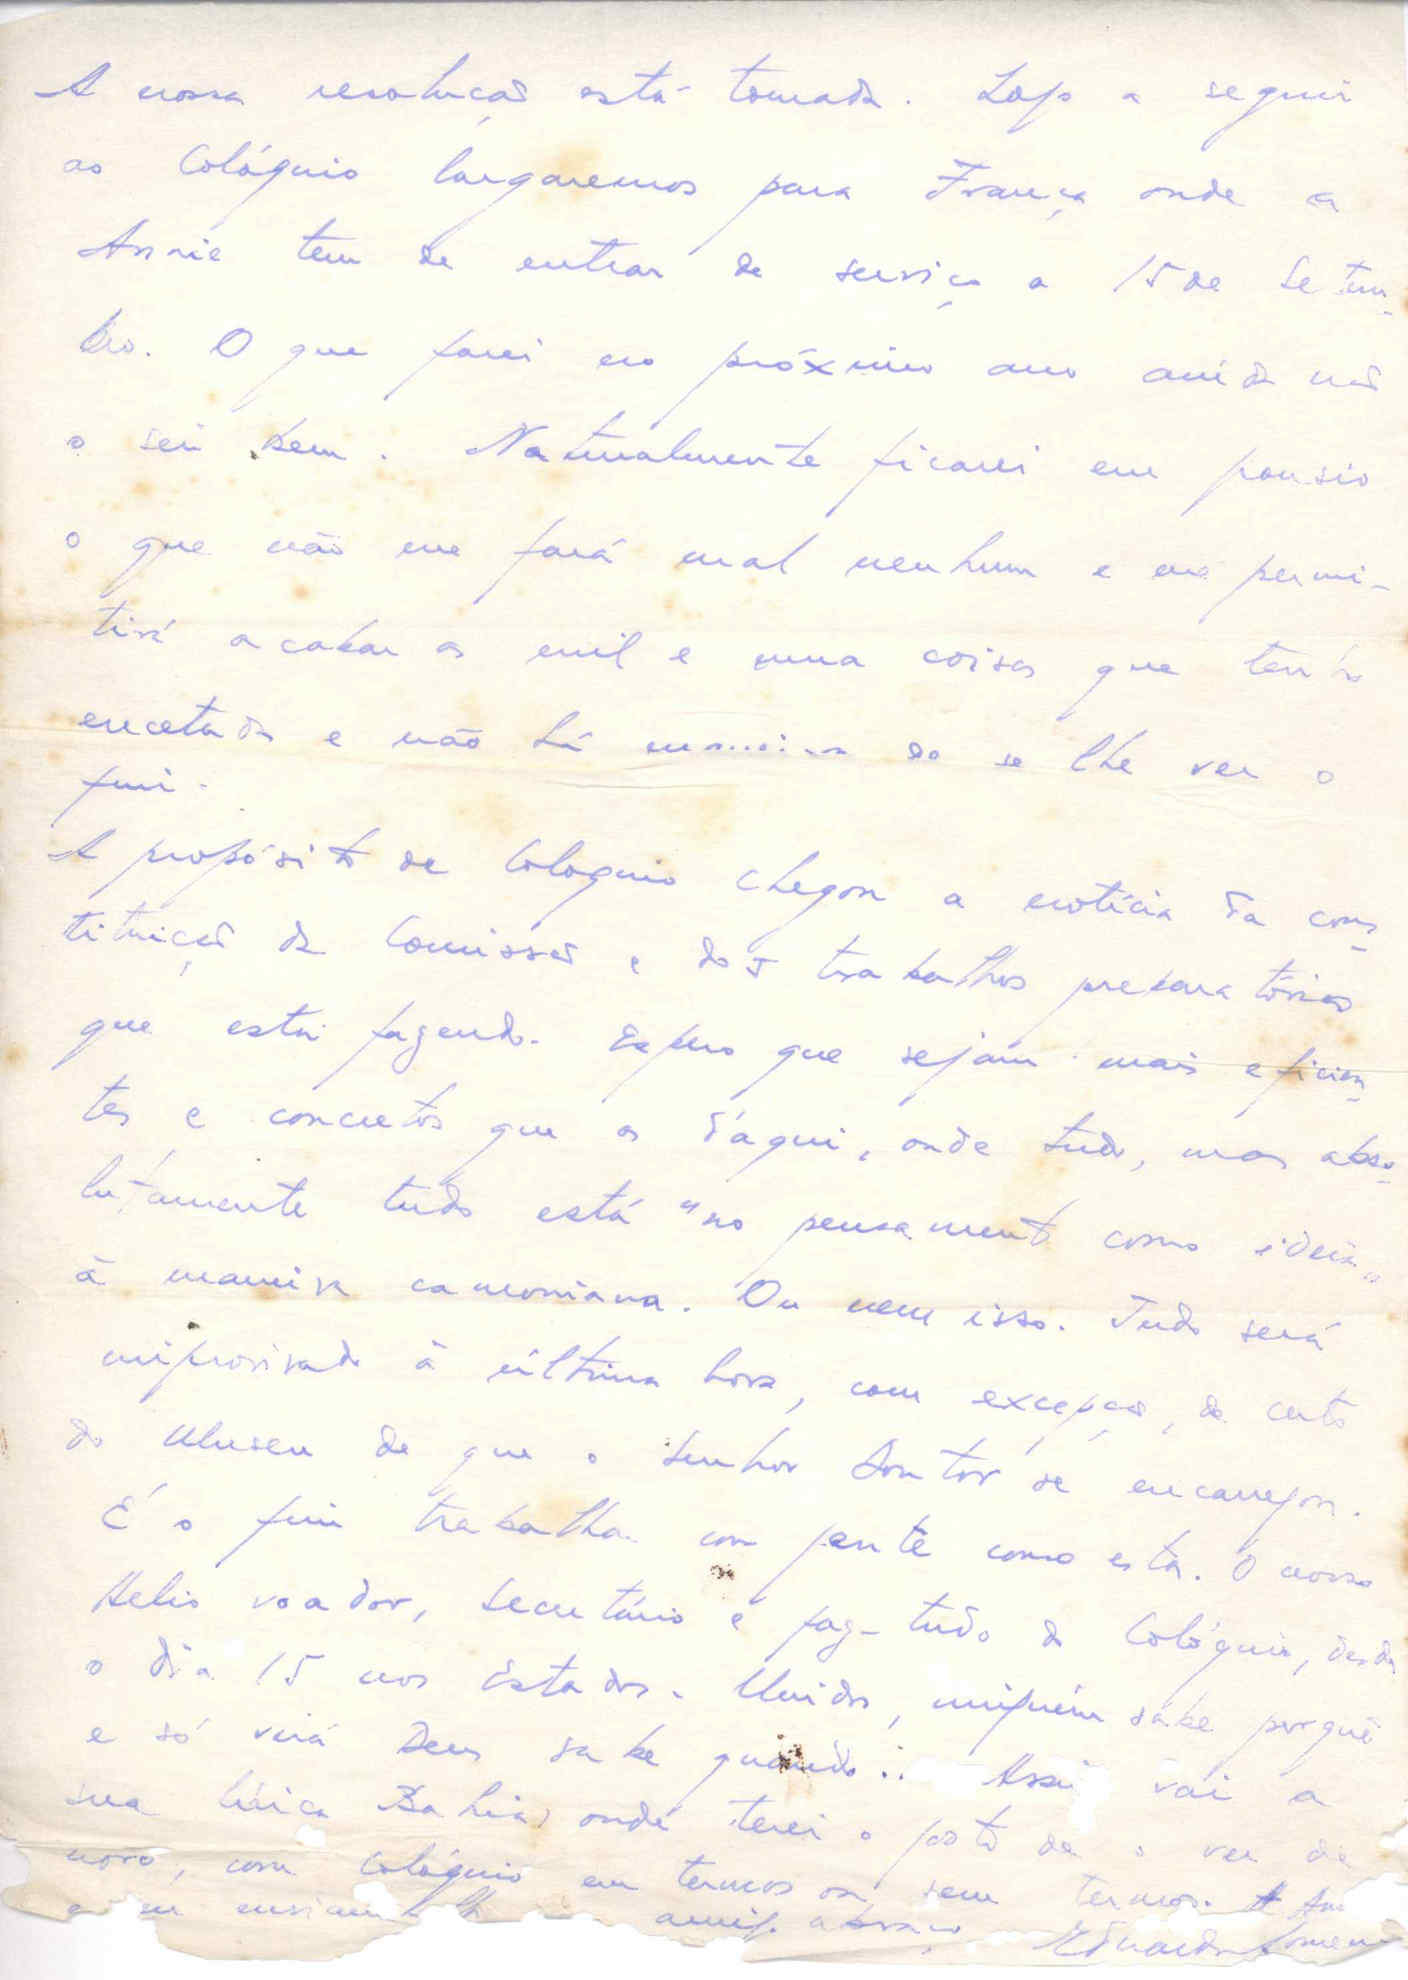 A nossa resolução está tomada. Logo a seguir
ao Colóquio largaremos para França onde a
Annie tem de entrar de serviço a 15 de Setem-
bro. O que farei no próximo ano ainda não
o sei bem. Naturalmente ficarei em pousio
o que não me fará mal nenhum e me permi-
tirá acabar as mil e uma coisas que tenho
encetadas e não há maneira de se lhe ver o
fim.
A propósito de Coloquio chegou a notícia da cons-
tituição da Comissão e dos trabalhos preparatórios
que está fazendo. Espero que sejam mais eficien-
tes e concretos que os d'aqui, onde tudo, mas abso-
lutamente tudo está "no pensamento como ideia"
à maneira camoniana. Ou nem isso. Tudo será
improvisado à última hora, com excepção, de certo
do Museu de que o Senhor Doutor se encarregou.
É o fim trabalhar com gente como esta. O nosso
Helio voador, Secretário e faz-tudo do Colóquio, desde
o dia 15 nos Estados-Unidos, ninguém sabe porquê
e só virá Deus sabe quando... Assim vai a
sua lírica Bahia, onde terei o gosto de o ver de
novo, com Colóquio em termos ou sem termos. A
e eu enviam abraço Eduardo